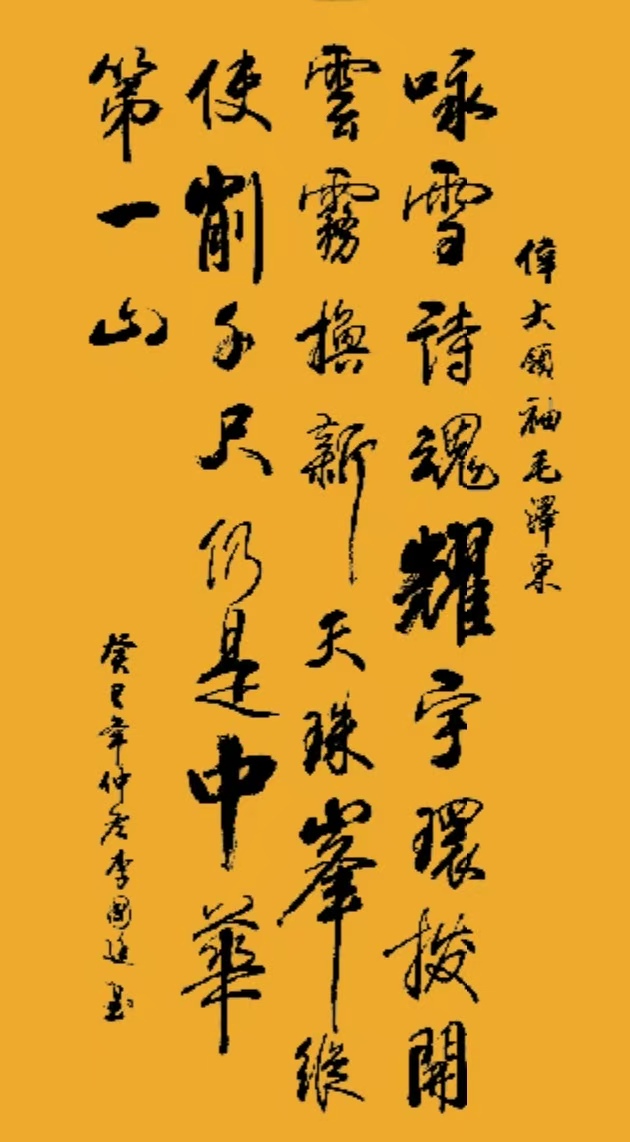 偉大領袖毛澤東
咏雪詩魂耀宇環撥開
雲霧換新天珠峯縱
使削千尺仍是中華
第一山
癸巳年仲冬李國廷書